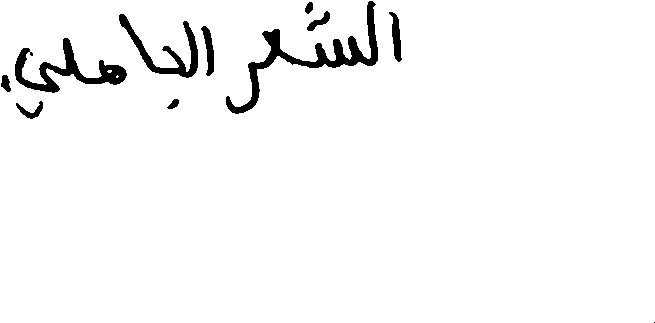 الشعر الجاهلي.